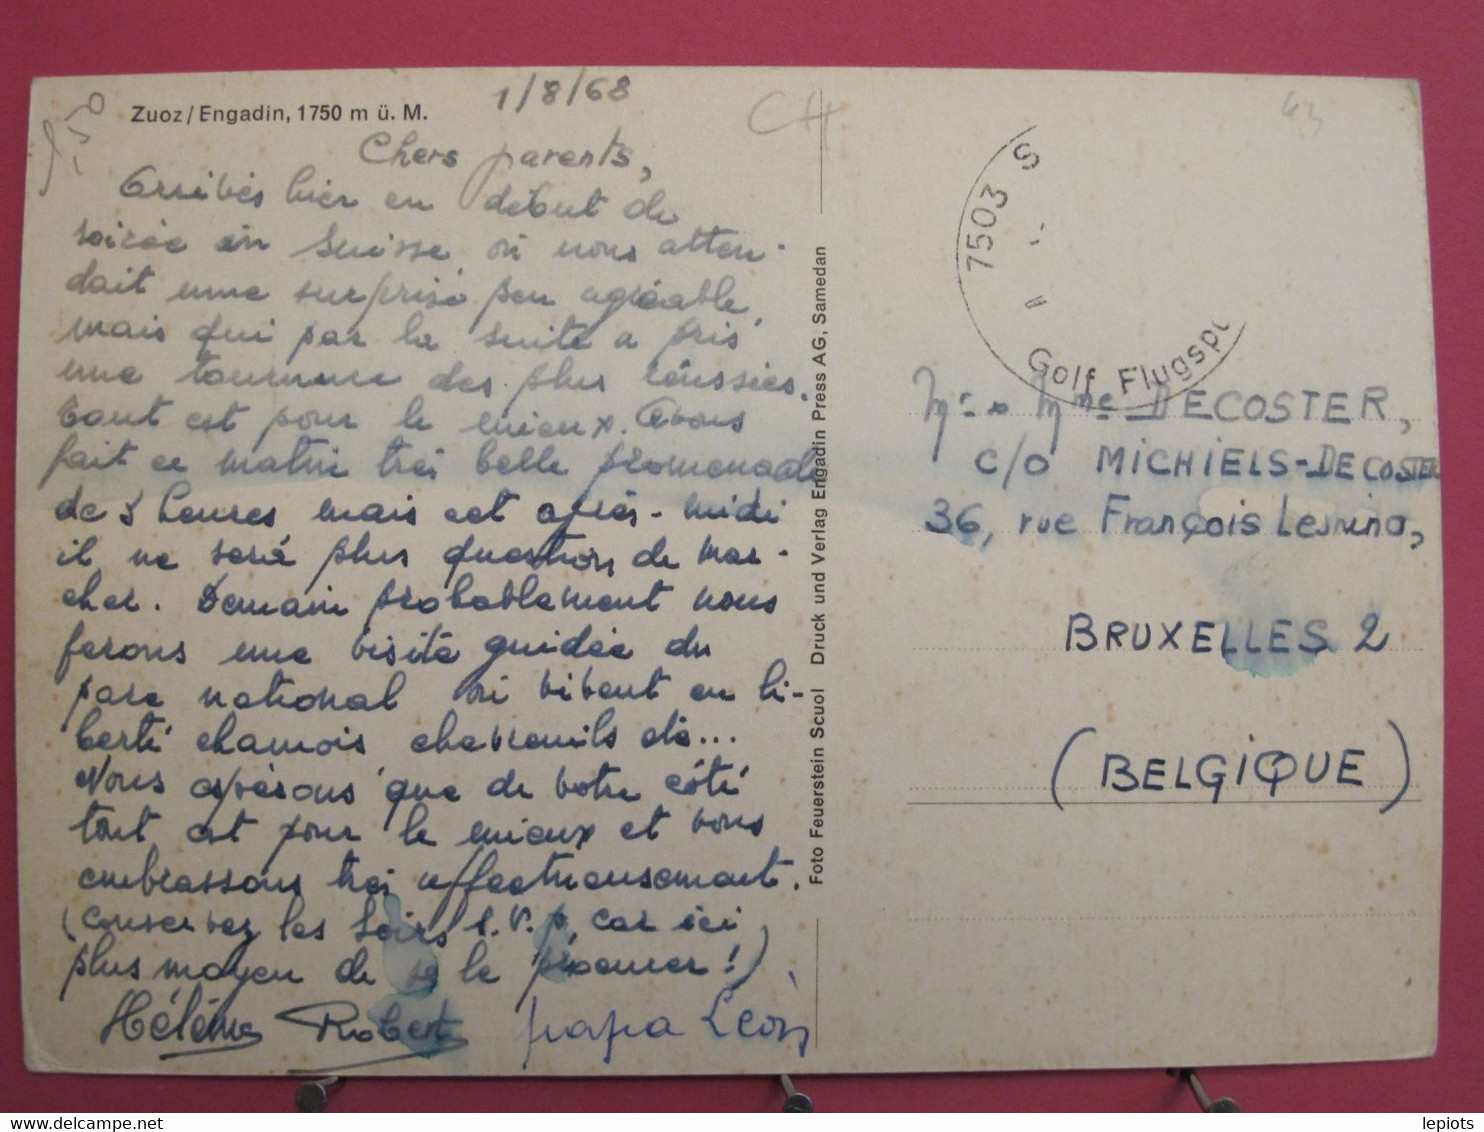 Zuoz/Engadin, 1750 m ü. M.
1/8/68
CH
Chers parents,
Arrivés hier en début de
soirée en Suisse où nous atten-
dait une surprise peu agréable,
mais qui par la suite a pris
une tournure des plus réussies.
Tout est pour le mieux. Avons
fait ce matin très belle promenade
de 3 heures mais cet après-midi
il ne sera plus question de mar-
cher. Demain probablement nous
ferons une visite guidée du
parc national où vivent en li-
berté chamois chevreuils
Nous espérons que de votre côté
tout est pour le mieux et vous
embrassons très affectueusement.
(Conservez les Soirs S.V.P, car ici
plus moyen de se le procurer!)
Hélène Robert papa Léon
Foto Feuerstein Scuol Druck und Verlag Engadin Press AG, Samedan
7503 S
Golf Flugspl
Mr - Mme DECOSTER,
c/o MICHIELS-DECOSTER
36, rue François Lesnino,
BRUXELLES 2
(BELGIQUE)
lepiots